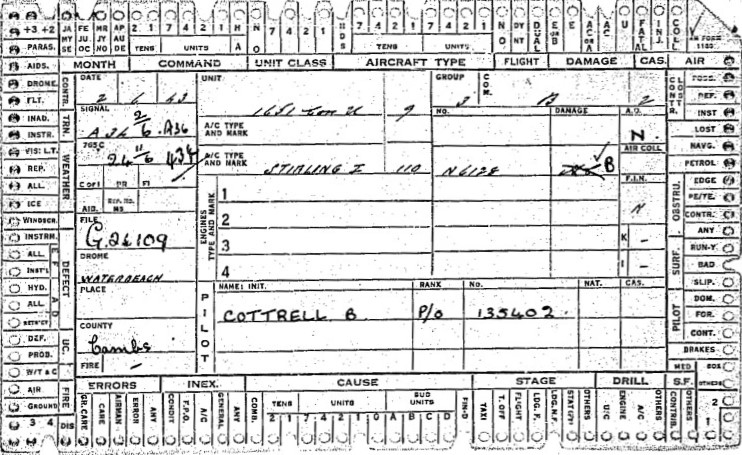 +3 +2 JA FE MR AP 7 4 2 1 7 4 2 1 H N 7 4 2 1 7 4 2 1 7 4 2 1 NT DYNT DUAL E or B E AC or A AC U FATAL INJ. COLL
MY JU JY AU TENS UNITS A O HDS TENS UNITS AM FORM 1180
SE OC NO DE
PARAS.
AIDS. MONTH COMMAND UNIT CLASS AIRCRAFT TYPE FLIGHT DAMAGE CAS. AIR
DROME. CONTR. DATE UNIT GROUP COM. CONTR. LOSTR. POSS.
FLT. 2 6 43 1651 Con U 9 3 B 2 REF.
INAD. TRN. SIGNAL A/C TYPE AND MARK NO. DAMAGE A.D. INST
INSTR. A 36 2/6 A36 N LOST
VIS: L.T. WEATHER 765C AIR COLL NAVG.
REP. 24 11/6 434 A/C TYPE AND MARK STIRLING I 110 N6128 B PETROL
ALL C of I PR FI F.I.N. OBSTRU. EDGE
ICE AID. REP. NO. MS ENGINES TYPE AND MARK 1 N PE/TE.
WINDSCR. FILE 2 CONTR.
INSTRM. DEFECT G.26109 K – ANY
ALL DROME 3 SURF. RUN-Y.
INST'L WATERBEACH 4 I – BAD
HYD. PLACE PILOT NAME: INIT. RANK NO. NAT. CAS. SLIP.
ALL COTTRELL B P/O 135402 PILOT DOM.
COUNTY FOR.
DEF. UC. Cambs CONT.
PROB. FIRE – BRAKES
W/T & C MED BOX
AIR FIRE ERRORS INEX. CAUSE STAGE DRILL S.F. OTHERS
GROUND GR. CARE CARE AIRMAN ERROR ANY CONDIT F.P.O. A/C GENERAL ANY COMB. TENS UNITS SUB UNITS FIN-D TAXI T. OFF FLIGHT LDG. F. LDG. N.F. OTHERS U/C ENGINE A/C OTHERS CONTRIB. OTHERS 2
3 4 DIS 2 1 7 4 2 1 0 A B C D 1